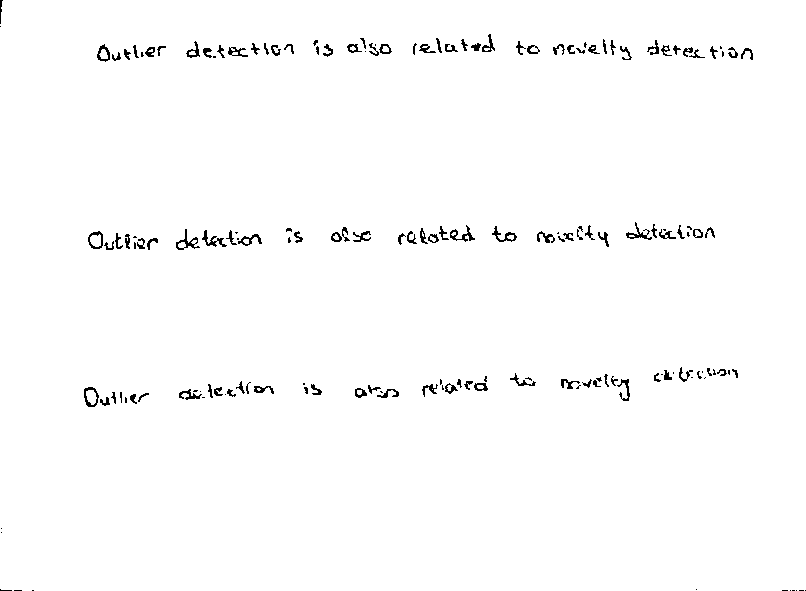 Outlier detection is also related to novelty detection
Outlier detection is also related to novelty detection
Outlier detection is also related to novelty detection